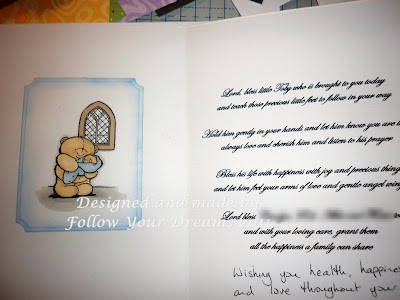 Lord, bless little Toby who is brought to you today
and teach those precious little feet to follow in your way
Hold him gently in your hands and let him know you are
always love and cherish him and listen to his prayer
Bless his life with happiness with joy and precious thing
and let him feel your arms of love and gentle angel wing
Lord bless
and with your loving care, grant them
all the happiness a family can share
Wishing you health, happines
and love throughout your
Designed and made by
Follow Your Dreams